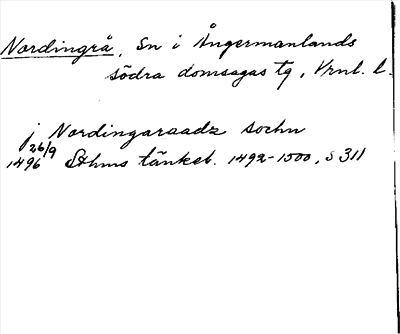 Nordingrå, Sn i Ångermanlands
södra domsagas tg, Vrnl. l.
j Nordingaraadz sochn
26/9
1496 Sthms tänkeb. 1492-1500, s 311